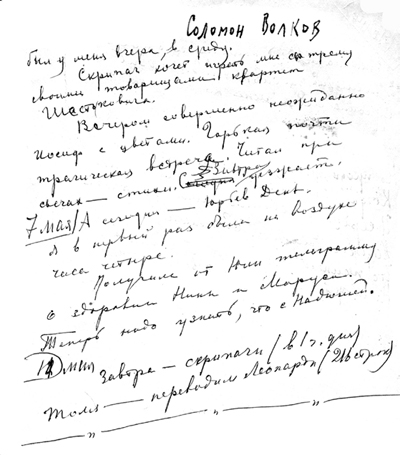 Соломон Волков
был у меня вчера, в среду.
Скрипач хочет играть мне с тремя
своими товарищами квартет
Шостаковича.
Вечером совершенно неожиданно
Иосиф с цветами. Горькая почти
трагическая встреча. Читал при
свечах — стихи. Сегодня Завтра уезжает.
7 мая/А сегодня — Юрьев День.
Я в первый раз была на воздухе
часа четыре.
Получила от Ани телеграмму
о здоровии Нины и Маруси.
Теперь надо узнать, что с Надюшей.
Завтра — скрипачи (в 1 ч. дня)
Толя — переводим Леопарди (210 строк)